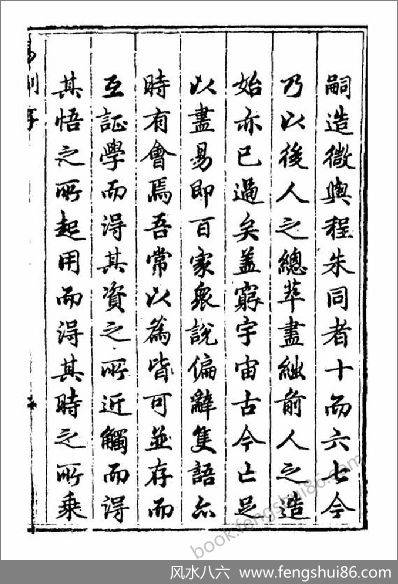 嗣造微與程朱同者十而六七今
乃以後人之總萃盡絀前人之造
始亦已過矣蓋窮宇宙古今亡足
以盡易即百家衆說偏辭隻語亦
時有會焉吾常以為皆可並存而
互証學而得其資之所近觸而得
其悟之所起用而得其時之所乘
book.fengshui86.com
风水八六 www.fengshui86.com